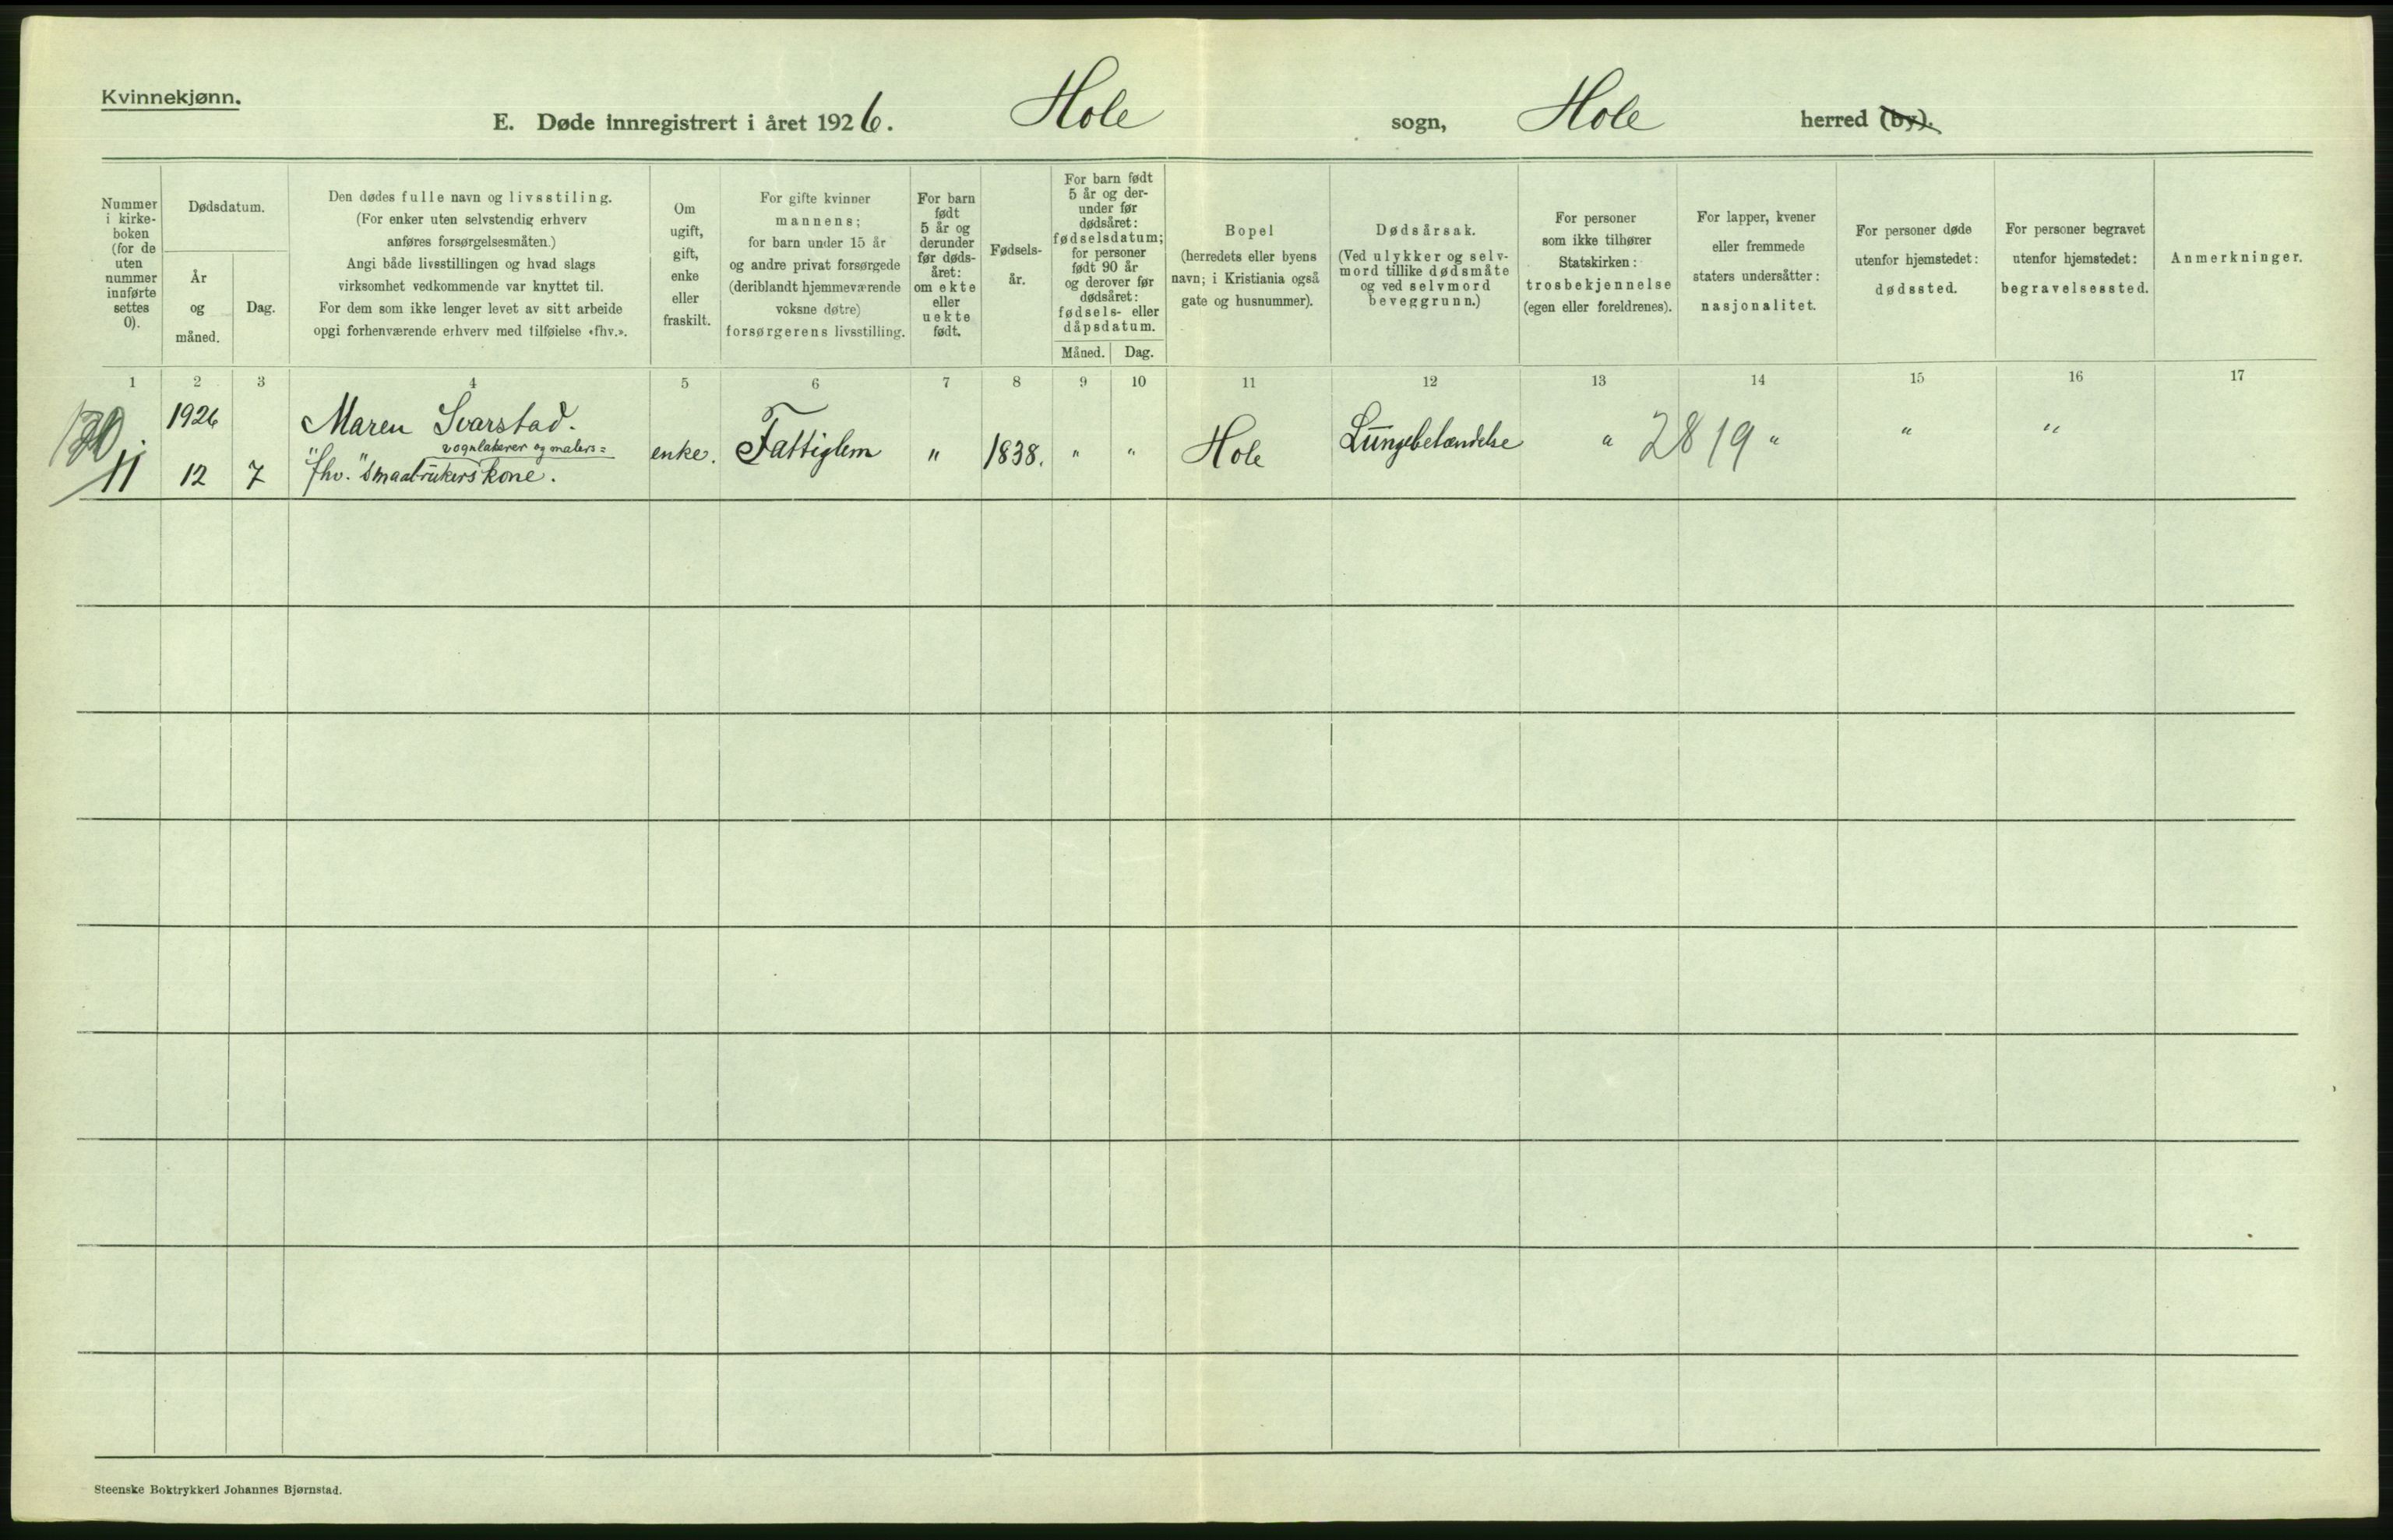 Kvinnekjønn.
E. Døde innregistrert i året 1926. Hole sogn, Hole herred (by).
Nummer i kirke- boken (for de uten nummer innførte settes 0).
Dødsdatum.
År og måned.
Dag.
Den dødes fulle navn og livsstiling.
(For enker uten selvstendig erhverv
anføres forsørgelsesmåten.)
Angi både livsstillingen og hvad slags
virksomhet vedkommende var knyttet til.
For dem som ikke lenger levet av sitt arbeide
opgi forhenværende erhverv med tilføielse «fhv.».
Om
ugift,
gift,
enke
eller
fraskilt.
For gifte kvinner
mannens;
for barn under 15 år
og andre privat forsørgede
(deriblandt hjemmeværende
voksne døtre)
forsørgerens livsstilling.
For barn
født
5 år og
derunder
før døds-
året:
om ekte
eller
uekte
født.
Fødsels-
år.
For barn født
5 år og der-
under før
dødsåret:
fødselsdatum;
for personer
født 90 år
og derover før
dødsåret:
fødsels- eller
dåpsdatum.
Måned. Dag.
Bopel
(herredets eller byens
navn; i Kristiania også
gate og husnummer).
Dødsårsak.
(Ved ulykker og selv-
mord tillike dødsmåte
og ved selvmord
beveggrunn.)
For personer
som ikke tilhører
Statskirken:
trosbekjennelse
(egen eller foreldrenes).
For lapper, kvener
eller fremmede
staters undersåtter:
nasjonalitet.
For personer døde
utenfor hjemstedet:
dødssted.
For personer begravet
utenfor hjemstedet:
begravelsessted.
Anmerkninger.
1 2 3 4 5 6 7 8 9 10 11 12 13 14 15 16 17
1926 Maren Svarstad.
vognlakerer og malers=
11 12 7 "fhv." smaabrukers kone. enke. Fattiglem " 1838. " " Hole Lungebetændelse " 2819 " " "
Steenske Boktrykkeri Johannes Bjørnstad.